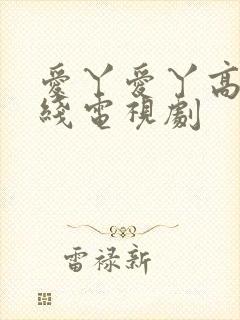 愛丫愛丫高
綫電視劇
雷禄新